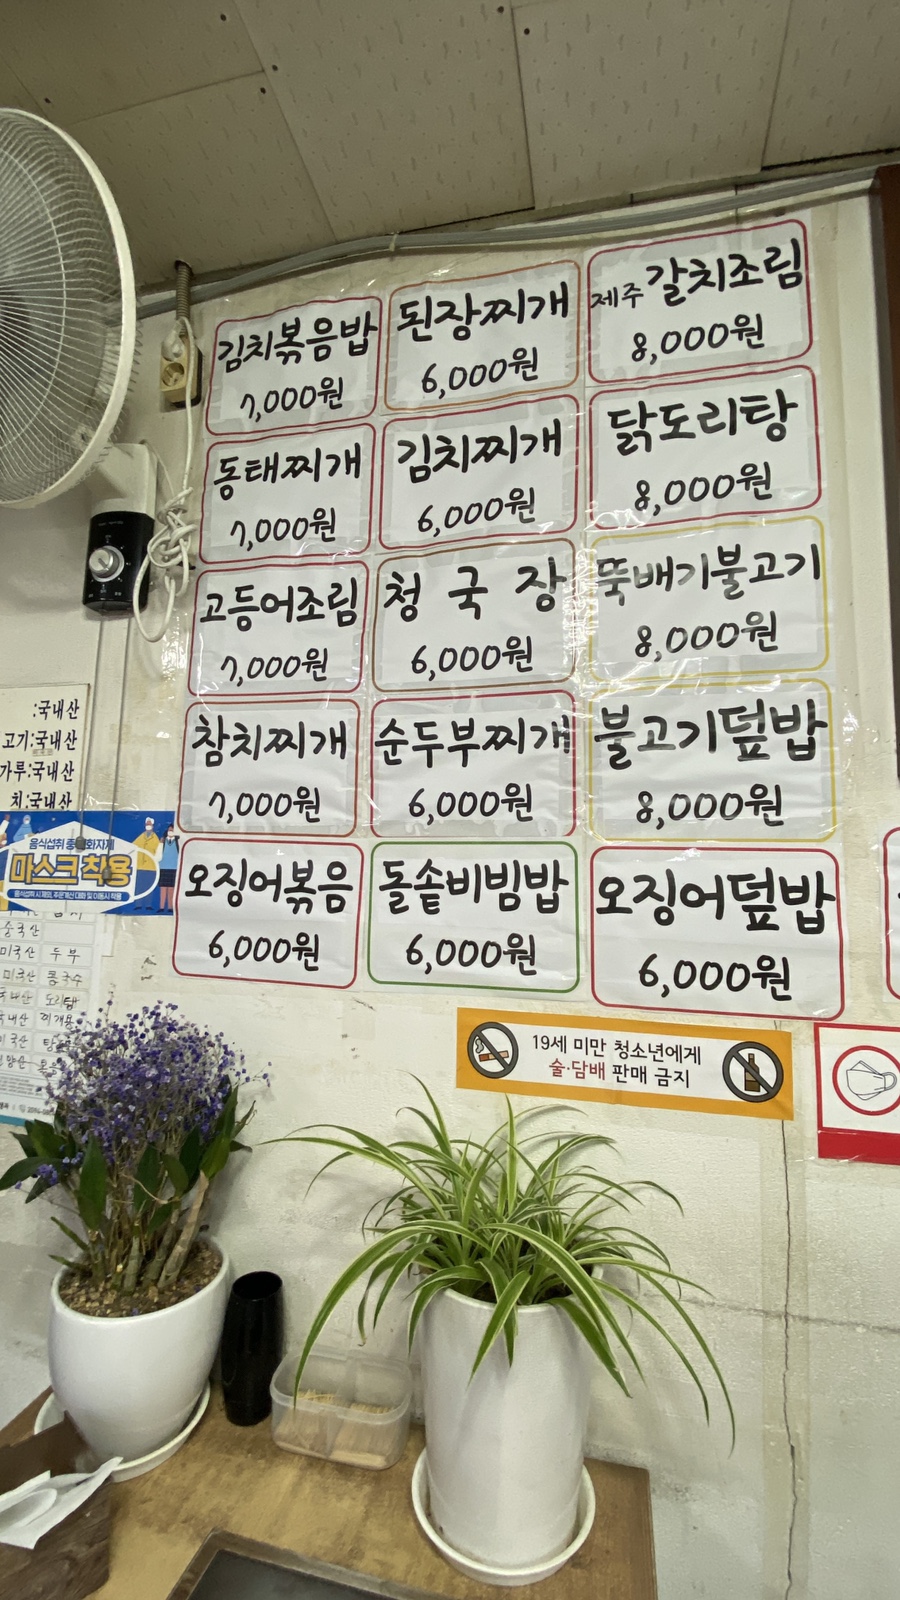 김치볶음밥
7,000원
된장찌개
6,000원
제주갈치조림
8,000원
동태찌개
7,000원
김치찌개
6,000원
닭도리탕
8,000원
고등어조림
7,000원
청국장
6,000원
뚝배기불고기
8,000원
참치찌개
7,000원
순두부찌개
6,000원
불고기덮밥
8,000원
오징어볶음
6,000원
돌솥비빔밥
6,000원
오징어덮밥
6,000원
:국내산
고기:국내산
가루:국내산
치:국내산
음식섭취
마스크 착용
미국산 두부
미국산 콩국수
19세 미만 청소년에게
술·담배 판매 금지